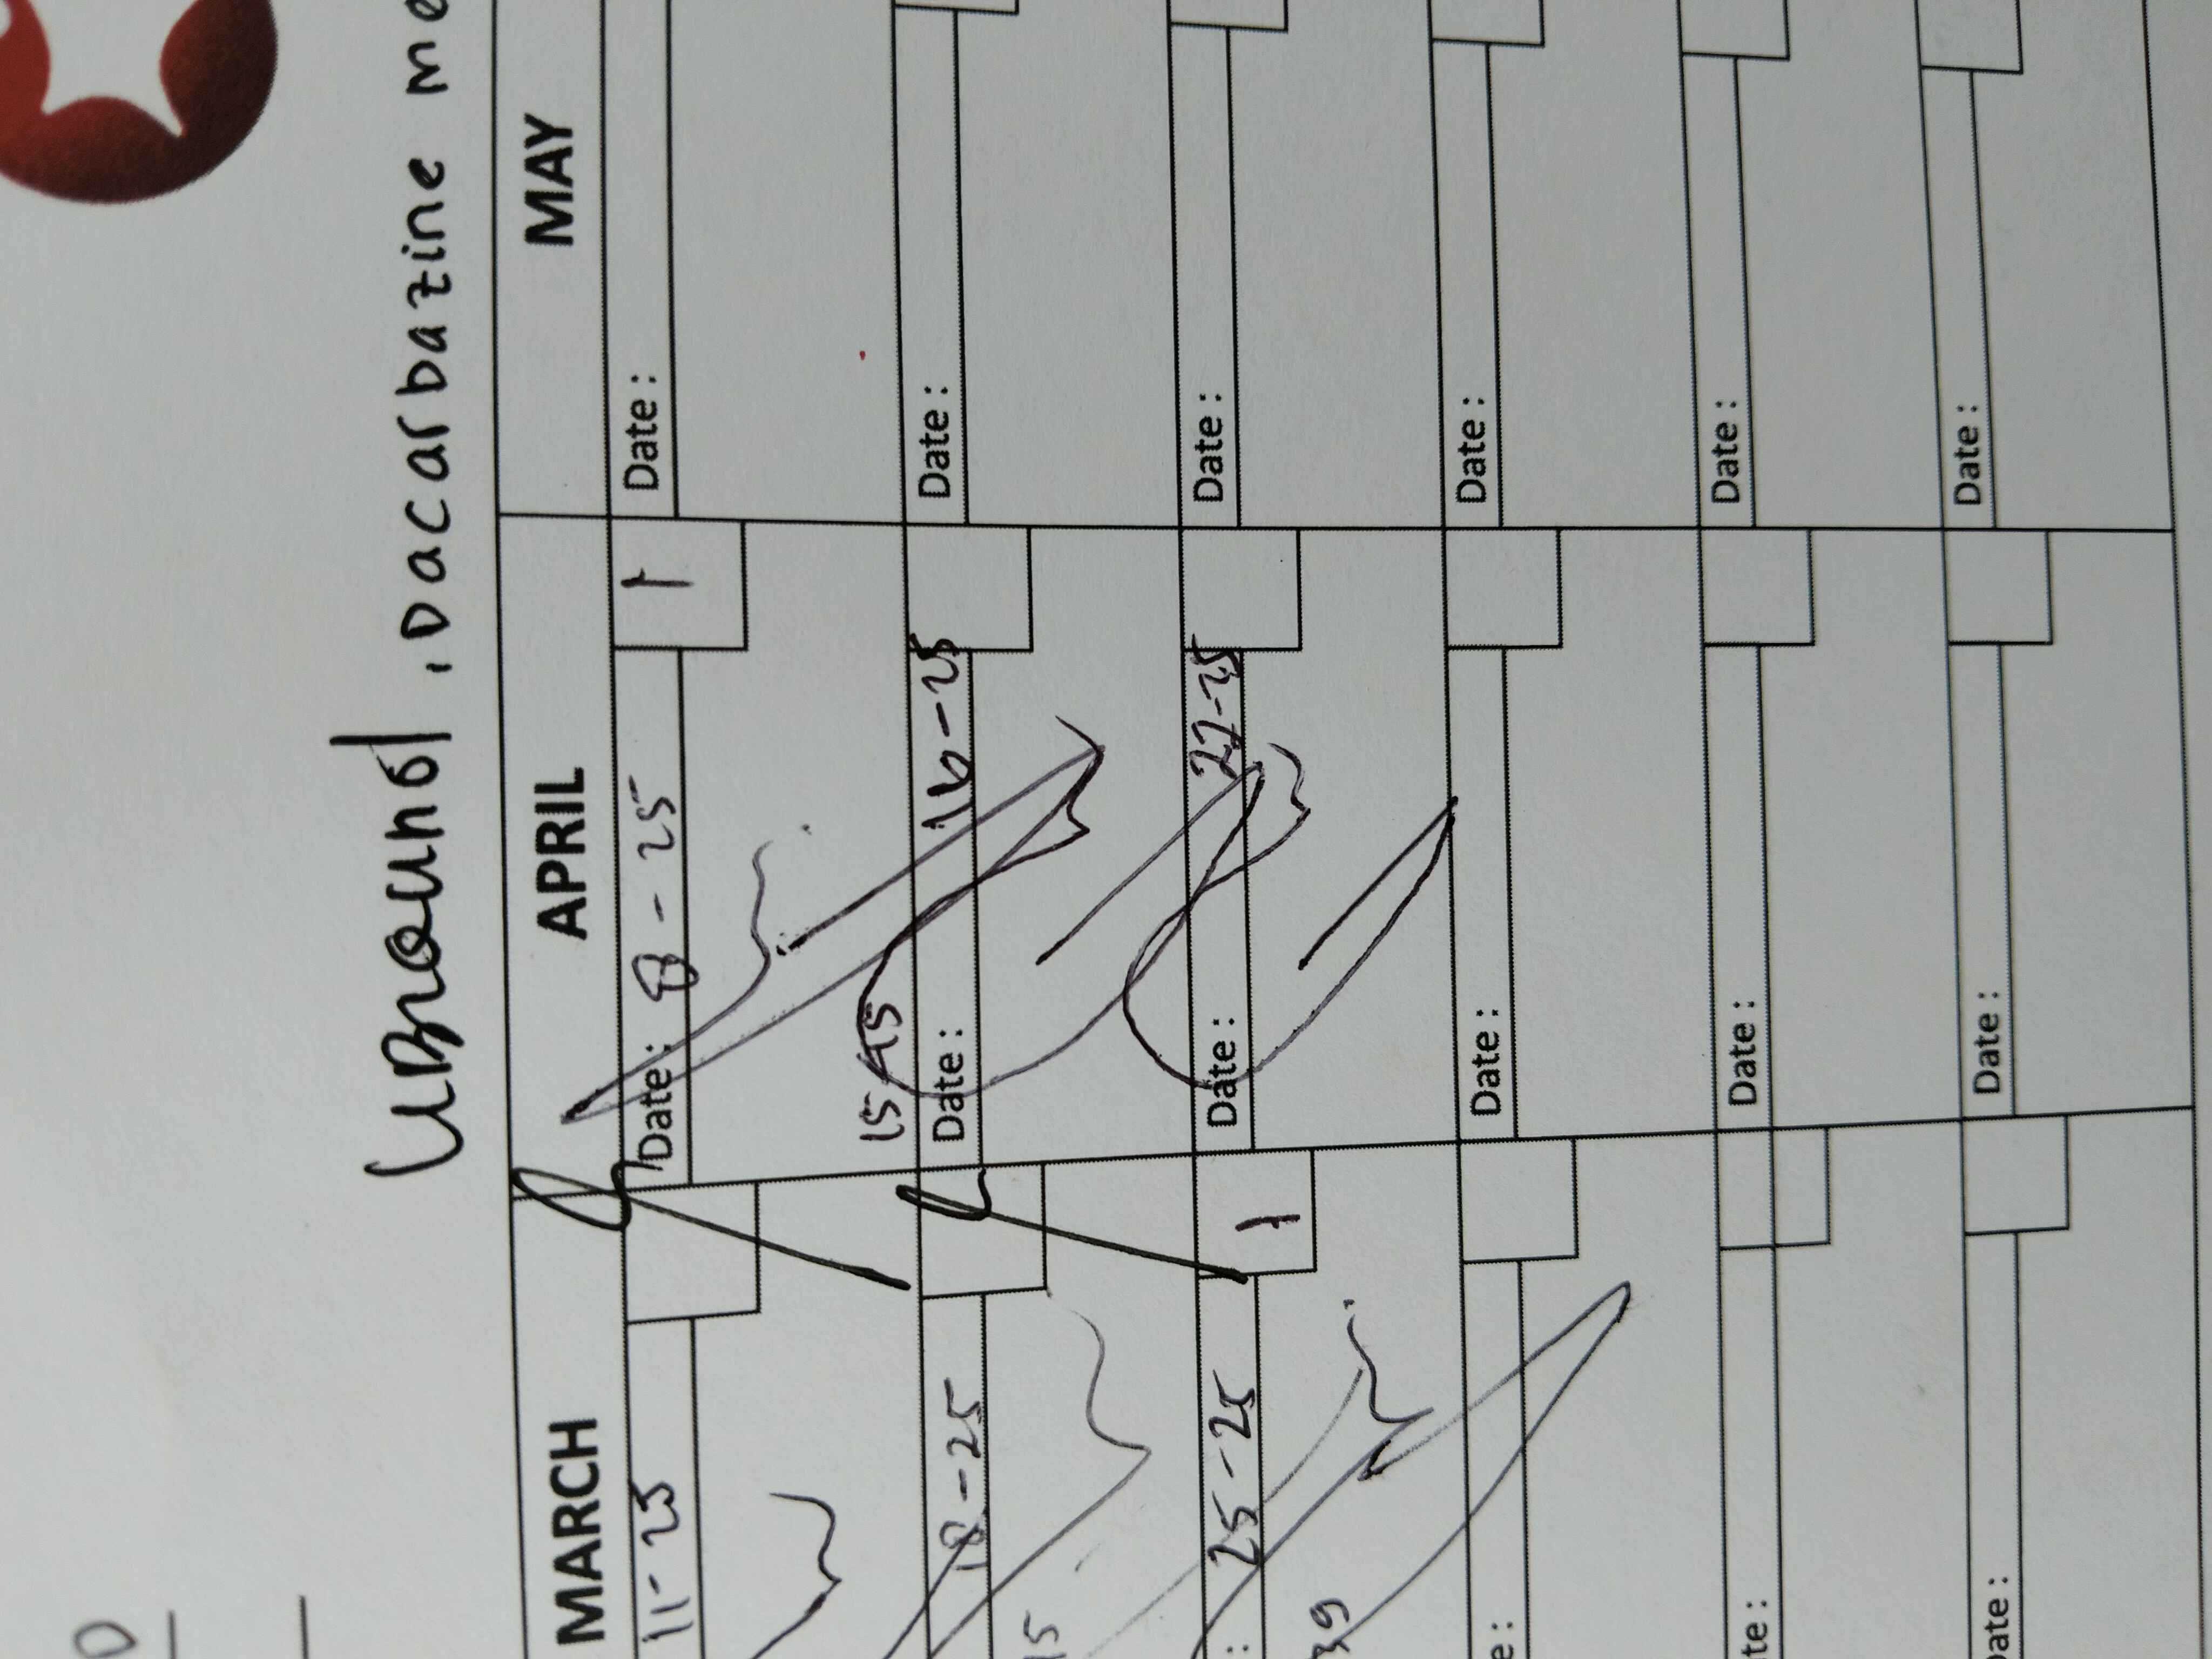 , Dacarbazine me
MARCH APRIL MAY
11-25 Date : 8 - 25 1 Date :
15 45
18-25 Date : 16-25 Date :
15
: 25-25 1 Date : 22-25 Date :
39
e : Date : Date :
te : Date : Date :
Date : Date : Date :